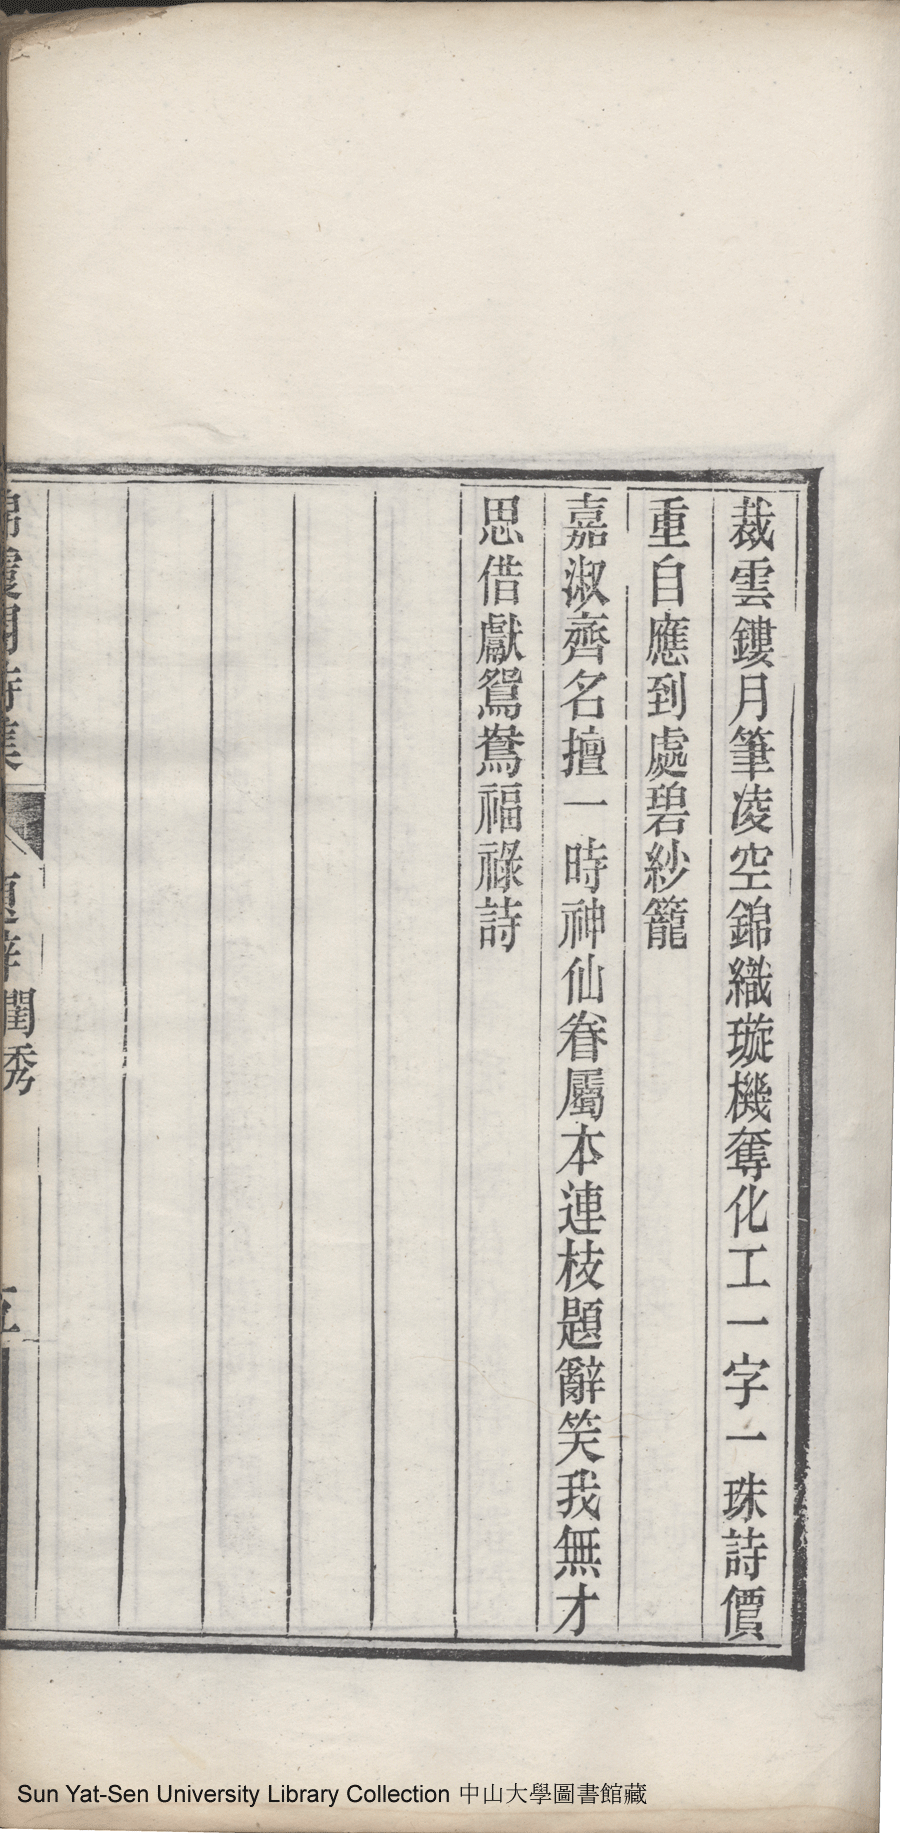 裁雲鏤月筆凌空錦織璇機奪化工一字一珠詩價
重自應到處碧紗籠
嘉淑齊名擅一時神仙眷屬本連枝題辭笑我無才
思借獻鴛鴦福祿詩
題辭閨秀
五
Sun Yat-Sen University Library Collection 中山大學圖書館藏